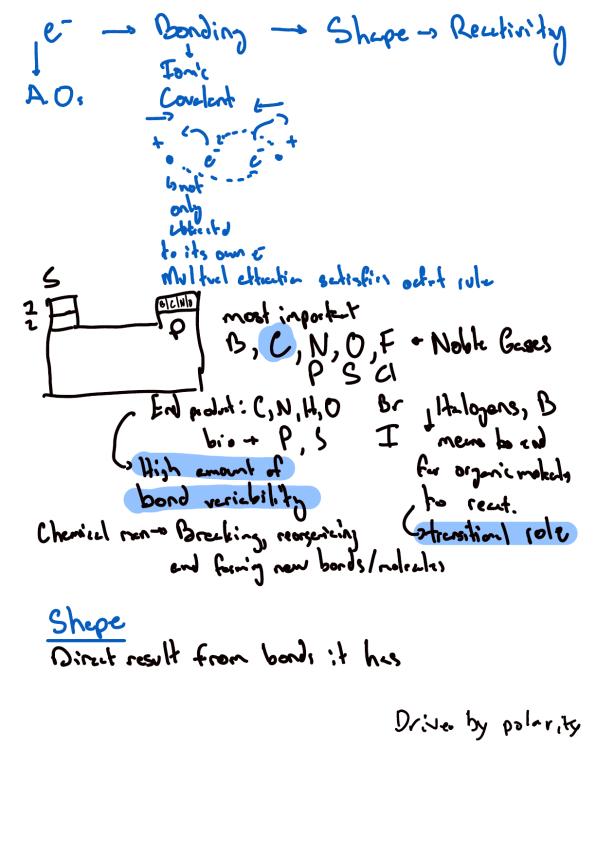 e⁻ → Bonding → Shape → Reactivity
↓
AOs
↓
Ionic
Covalant
+ e⁻ e⁻ +
not
only
to its own e⁻
Mutual attraction satisfies octet rule
S
1
2
B C N O
P
most important
B, C, N, O, F • Noble Gases
P S Cl
End product: C, N, H, O Br Halogens, B
bio → P, S I means to end
High amount of for organic molecules
bond variability to react.
transitional role
Chemical rxn → Breaking, reorganizing
and forming new bonds/molecules
Shape
Direct result from bonds it has
Driven by polarity